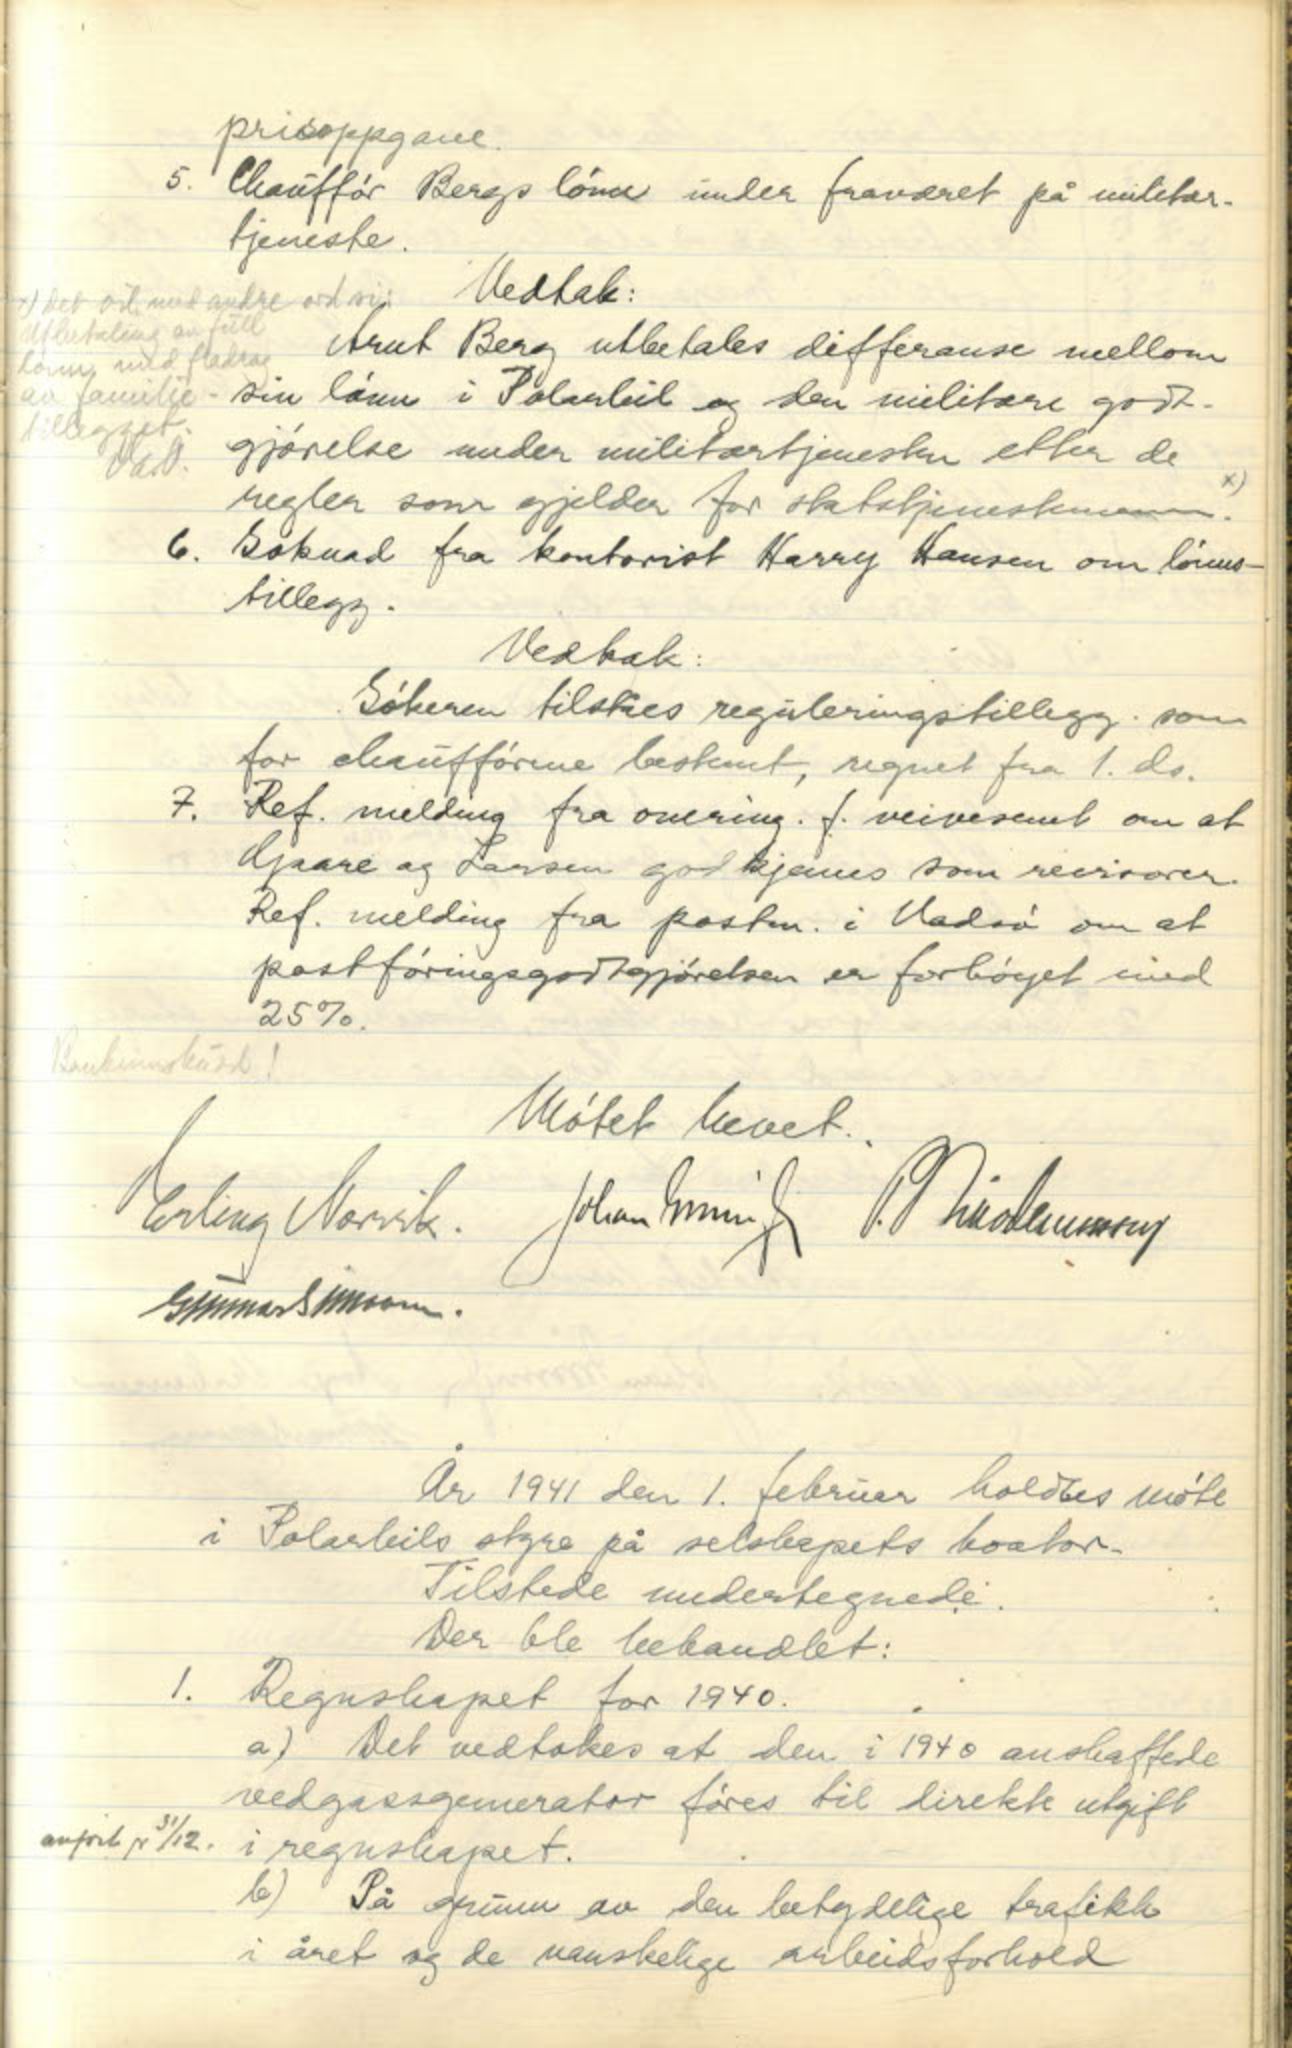 prisoppgave.
5. Chauffør Bergs lønn under fraværet på militær-
tjeneste.
Vedtak:
x) det vil med andre ord si:
Utbetaling av full
lønn med fradrag
av familie-
tillegget.
Arnt Berg utbetales differanse mellom
sin lønn i Polarbil og den militære godt-
gjørelse under militærtjenesten etter de
regler som gjelder for statstjenestemenn. x)
6. Søknad fra kontorist Harry Hansen om lønns-
tillegg.
Vedtak:
Søkeren tilståes reguleringstillegg som
for chaufførene bestemt, regnet fra 1. ds.
7. Ref. melding fra overing. f. veivesenet om at
og Larsen godkjennes som revisorer.
Ref. melding fra postm. i Vadsø om at
postføringsgodtgjørelsen er forhøyet med
25%.
Bankinnskudd!
Møtet hevet.
Erling Norvik. Johan
Gunnar Simonsen.
År 1941 den 1. februar holdtes møte
i Polarbils styre på selskapets kontor.
Tilstede undertegnede.
Der ble behandlet:
1. Regnskapet for 1940.
a) Det vedtokes at den i 1940 anskaffede
vedgassgenerator føres til direkte utgift
anført pr 31/12. i regnskapet.
b) På grunn av den betydelige trafikk
i året og de vanskelige arbeidsforhold